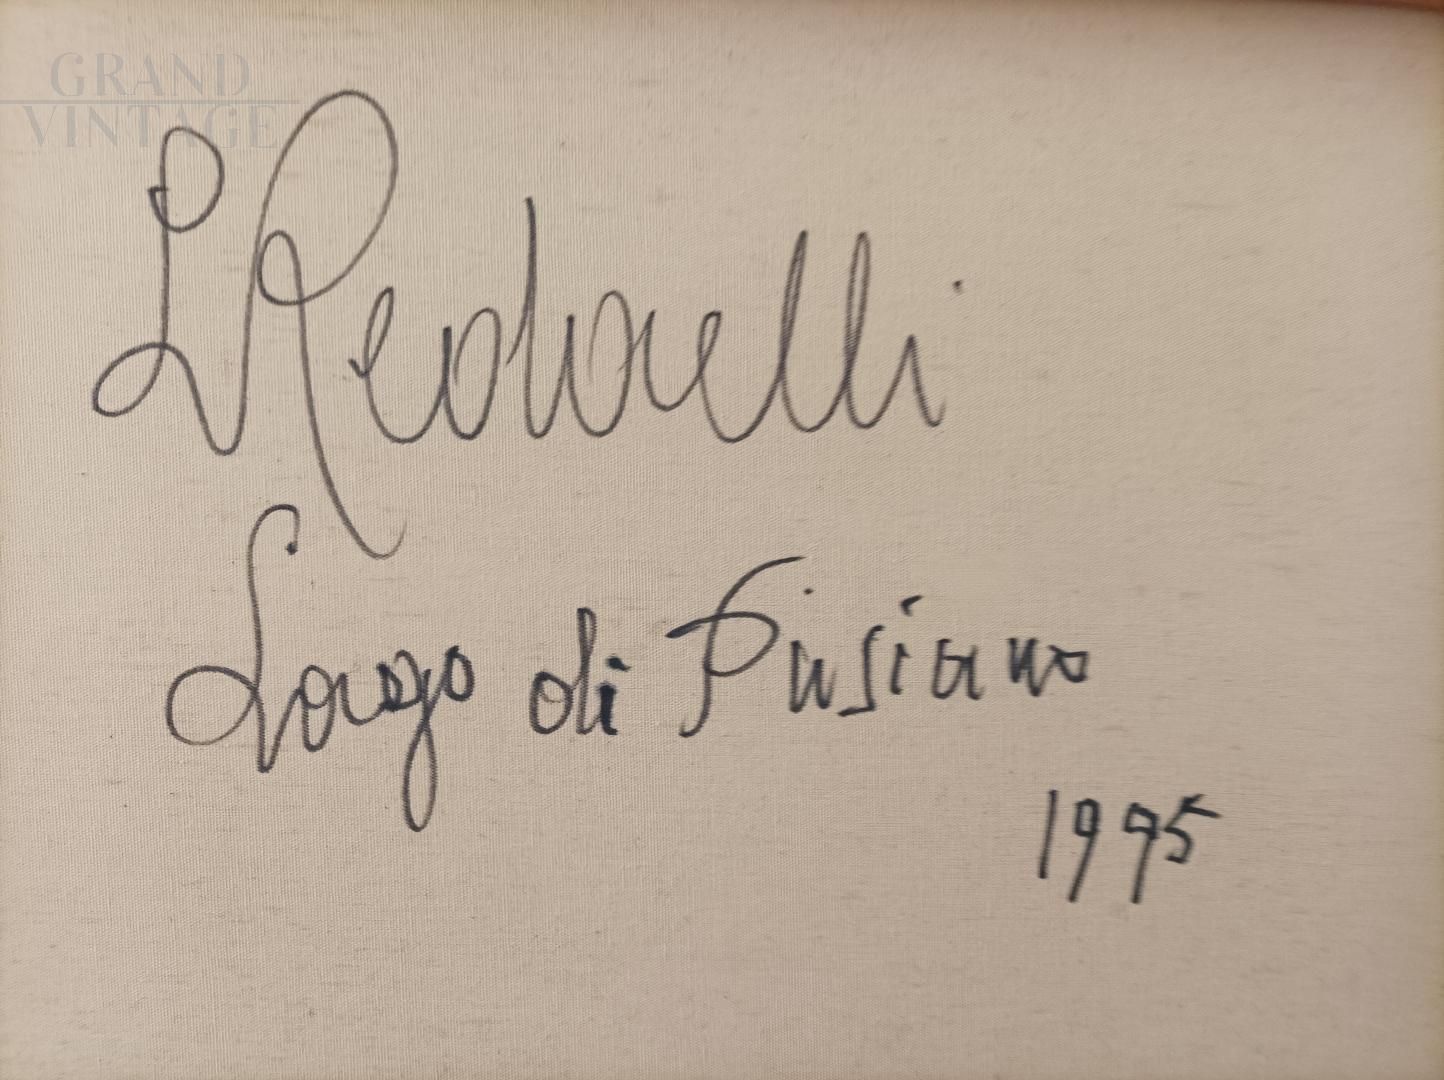 GRAND
VINTAGE
L Redaelli
Lago di Pusiano
1995